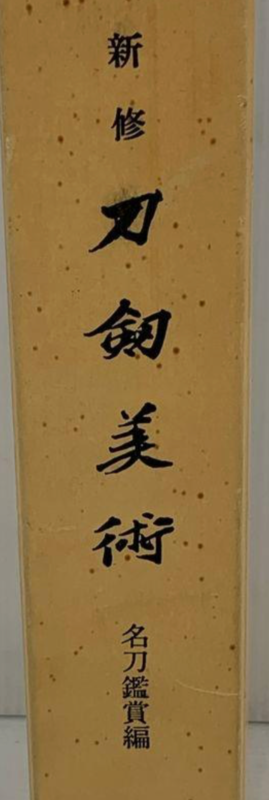 新修
刀剱美術
名刀鑑賞編